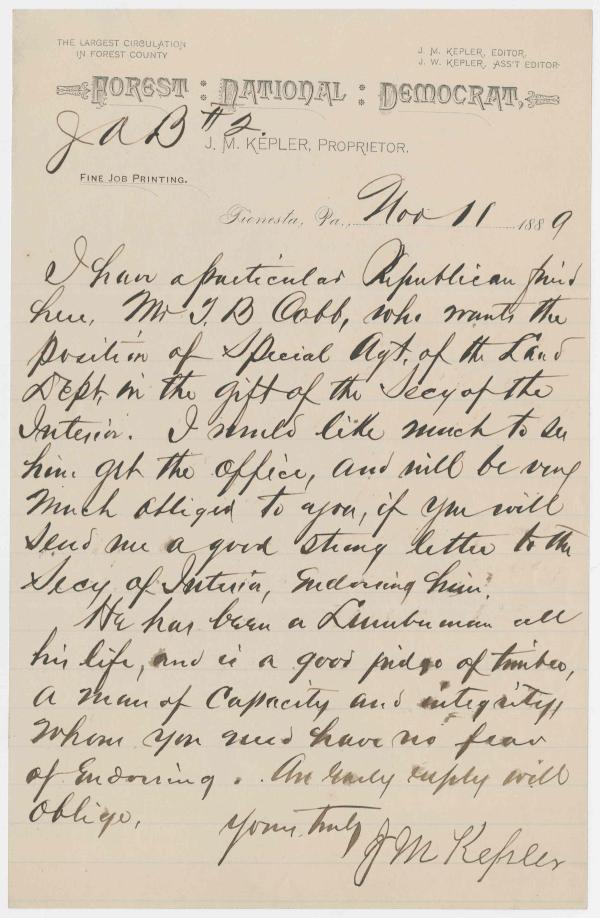 THE LARGEST CIRCULATION
IN FOREST COUNTY
J. M. KEPLER, EDITOR.
J. W. KEPLER, ASS'T EDITOR
FOREST : NATIONAL : DEMOCRAT,
J A B # 2.
J. M. KEPLER, PROPRIETOR.
FINE JOB PRINTING.
Tionesta, Pa., Nov 11 1889
I have a particular Republican frind
here, Mr T. B Cobb, who wants the
position of Special Agt. of the Land
Dept, in the gift of the Secy of the
Interior. I would like much to see
him get the office, and will be very
much obliged to you, if you will
send me a good strong letter to the
Secy of Interior, Endorsing him.
He has been a Lumberman all
his life, and is a good judge of timber,
a man of capacity and integrity,
whom you need have no fear
of Endorsing. An early reply will
oblige,
Yours truly
J M Kepler